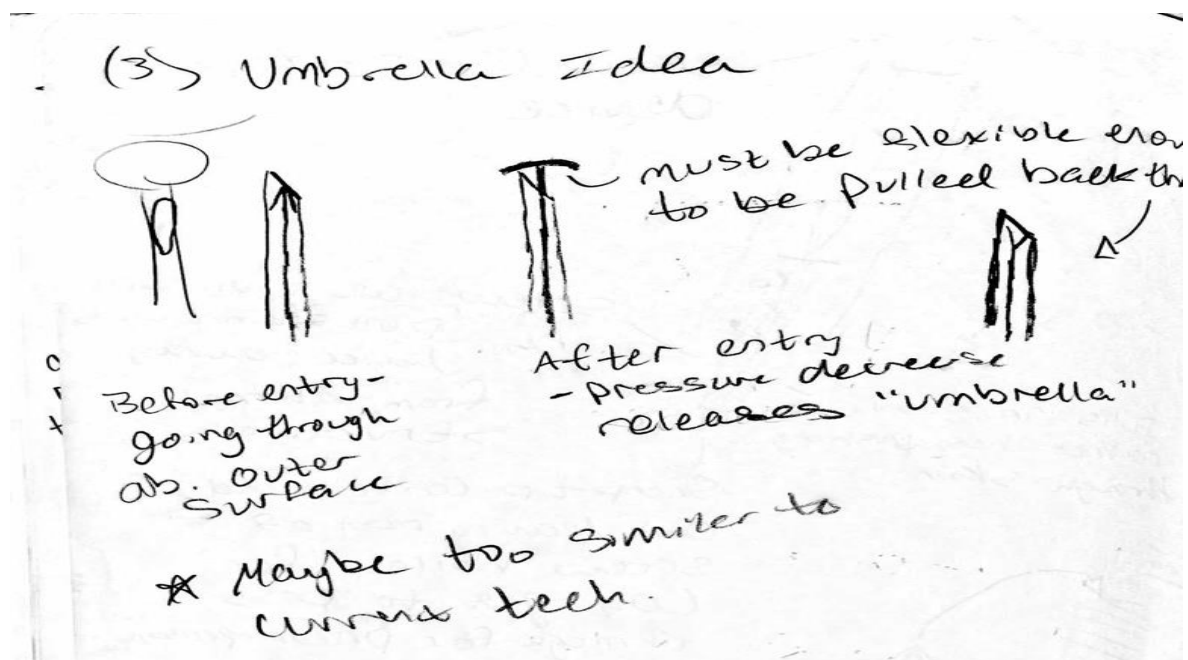 (3) Umbrella Idea
must be flexible
to be pulled back
Before entry-
going through
ab. outer
surface
After entry
- pressure decrease
releases "umbrella"
* Maybe too similer to
current tech.